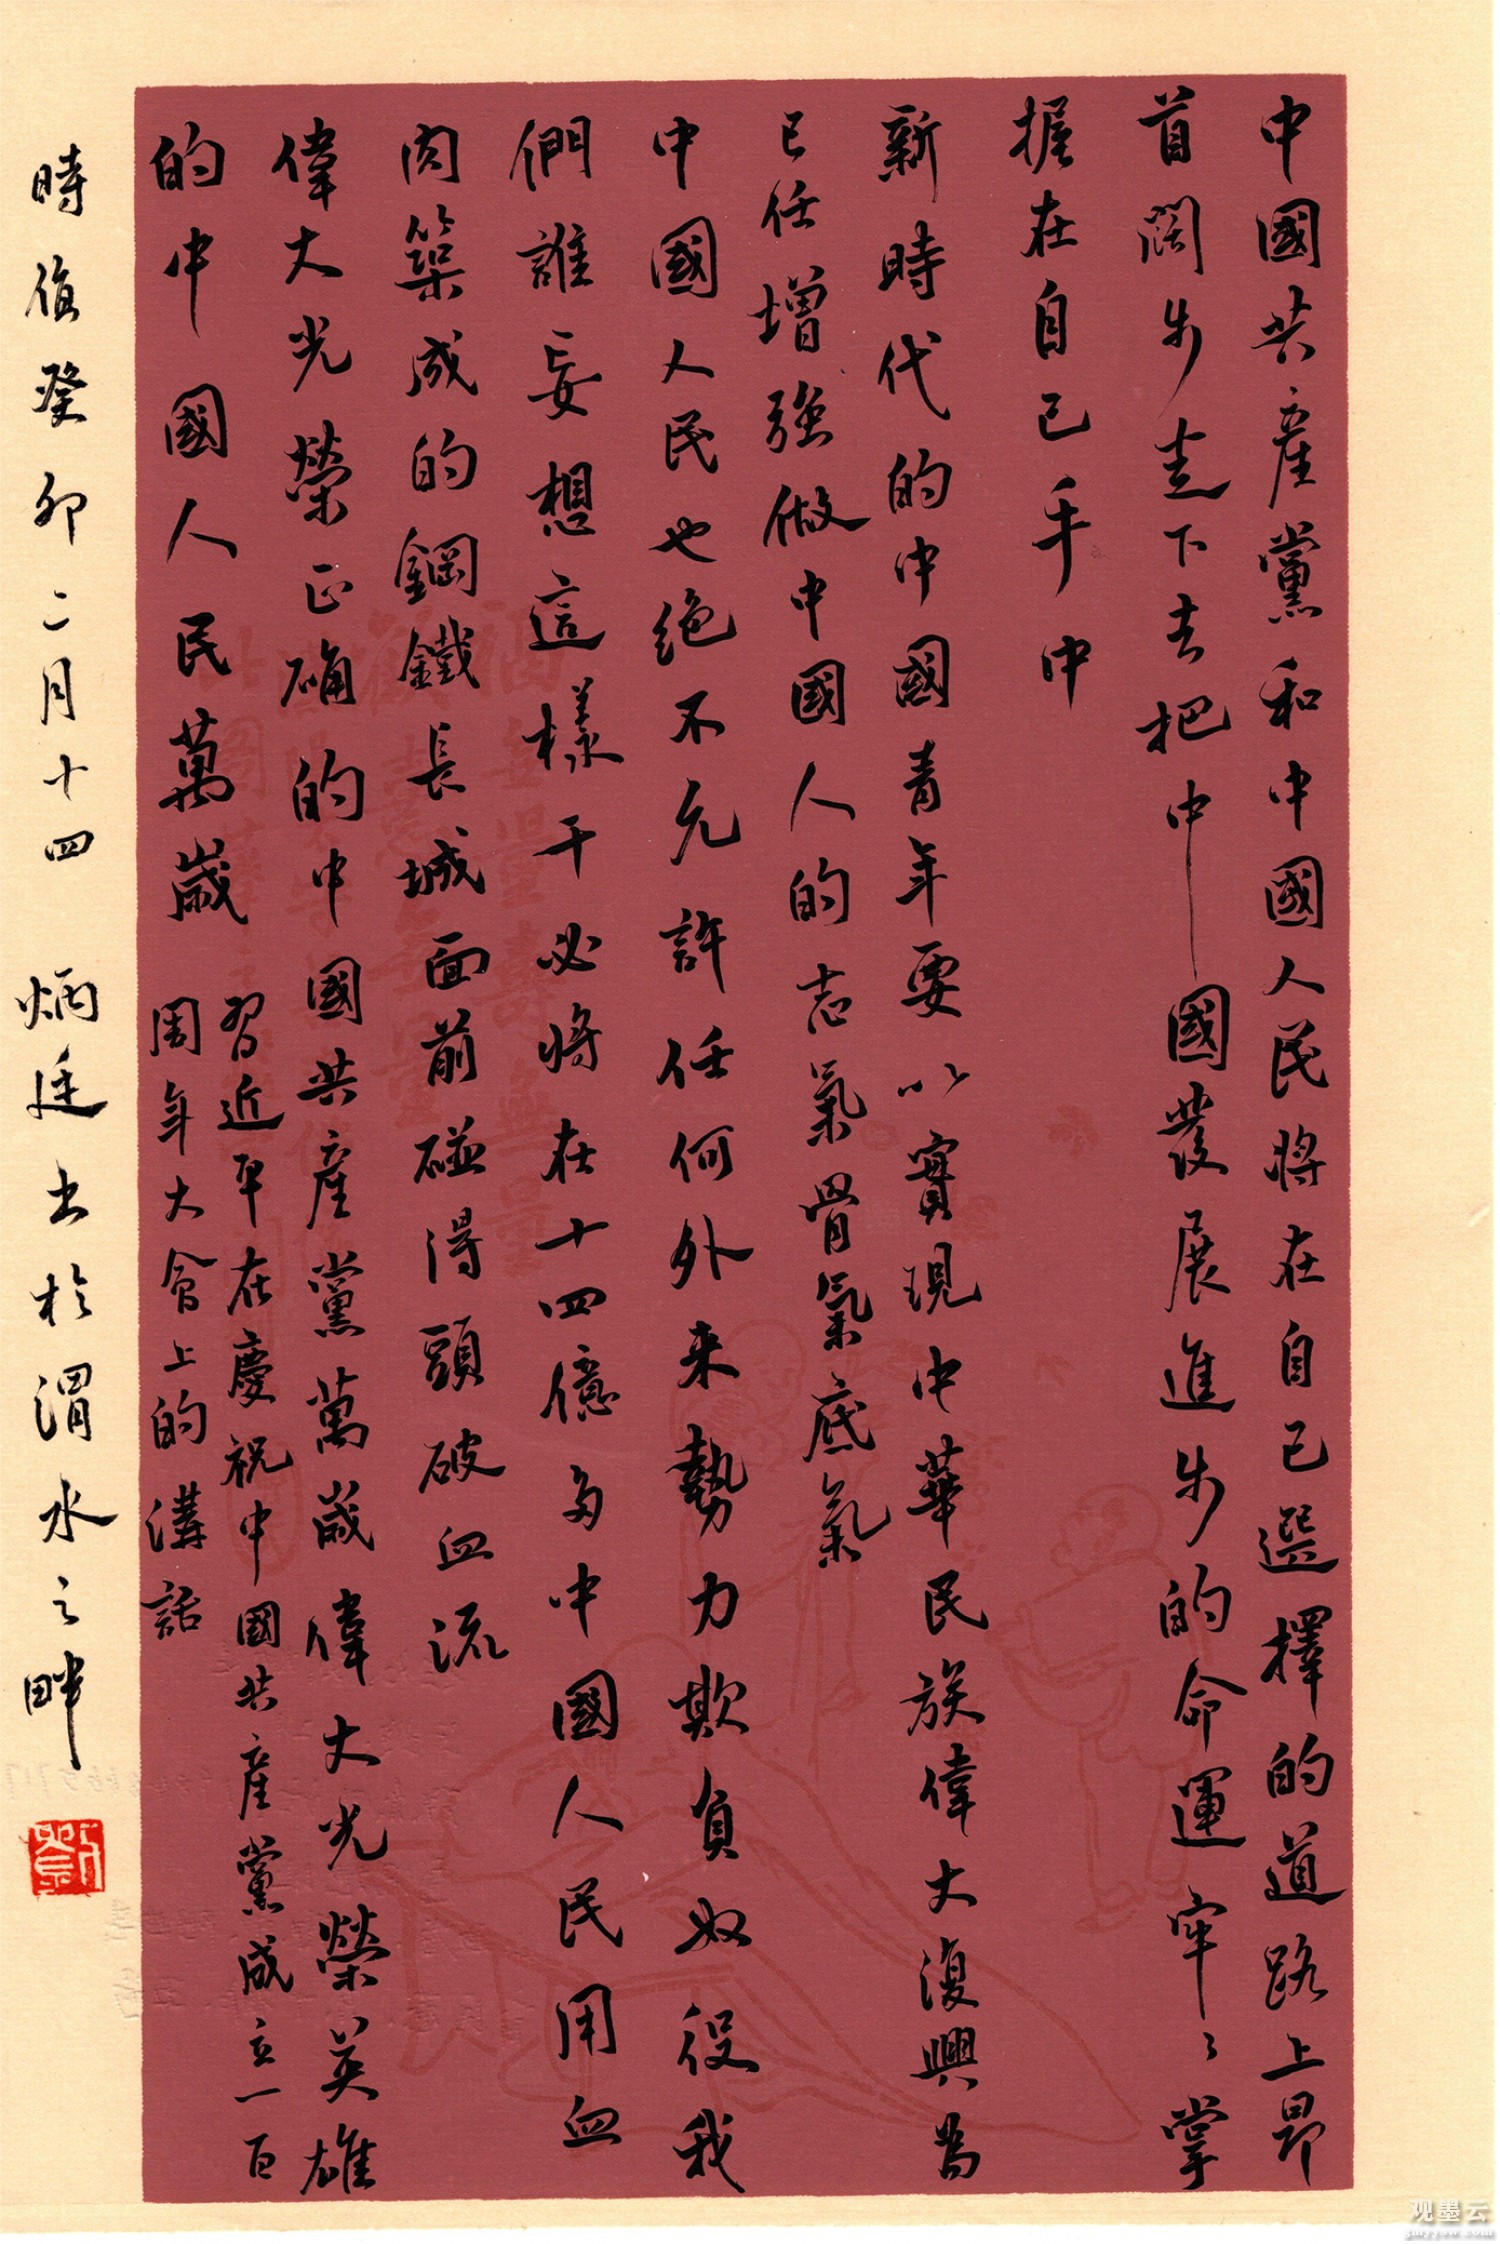 中國共產黨和中國人民將在自己選擇的道路上昂
首闊步走下去把中國發展進步的命運牢々掌
握在自己手中
新時代的中國青年要以實現中華民族偉大復興為
己任增強做中國人的志氣骨氣底氣
中國人民也絕不允許任何外来勢力欺負奴役我
們誰妄想這樣干必將在十四億多中國人民用血
肉築成的鋼鐵長城面前碰得頭破血流
偉大光榮正确的中國共產黨萬歲偉大光榮英雄
的中國人民萬歲
習近平在慶祝中國共產黨成立一百
周年大會上的講話
時值癸卯二月十四 炳廷书於渭水之畔
观墨云